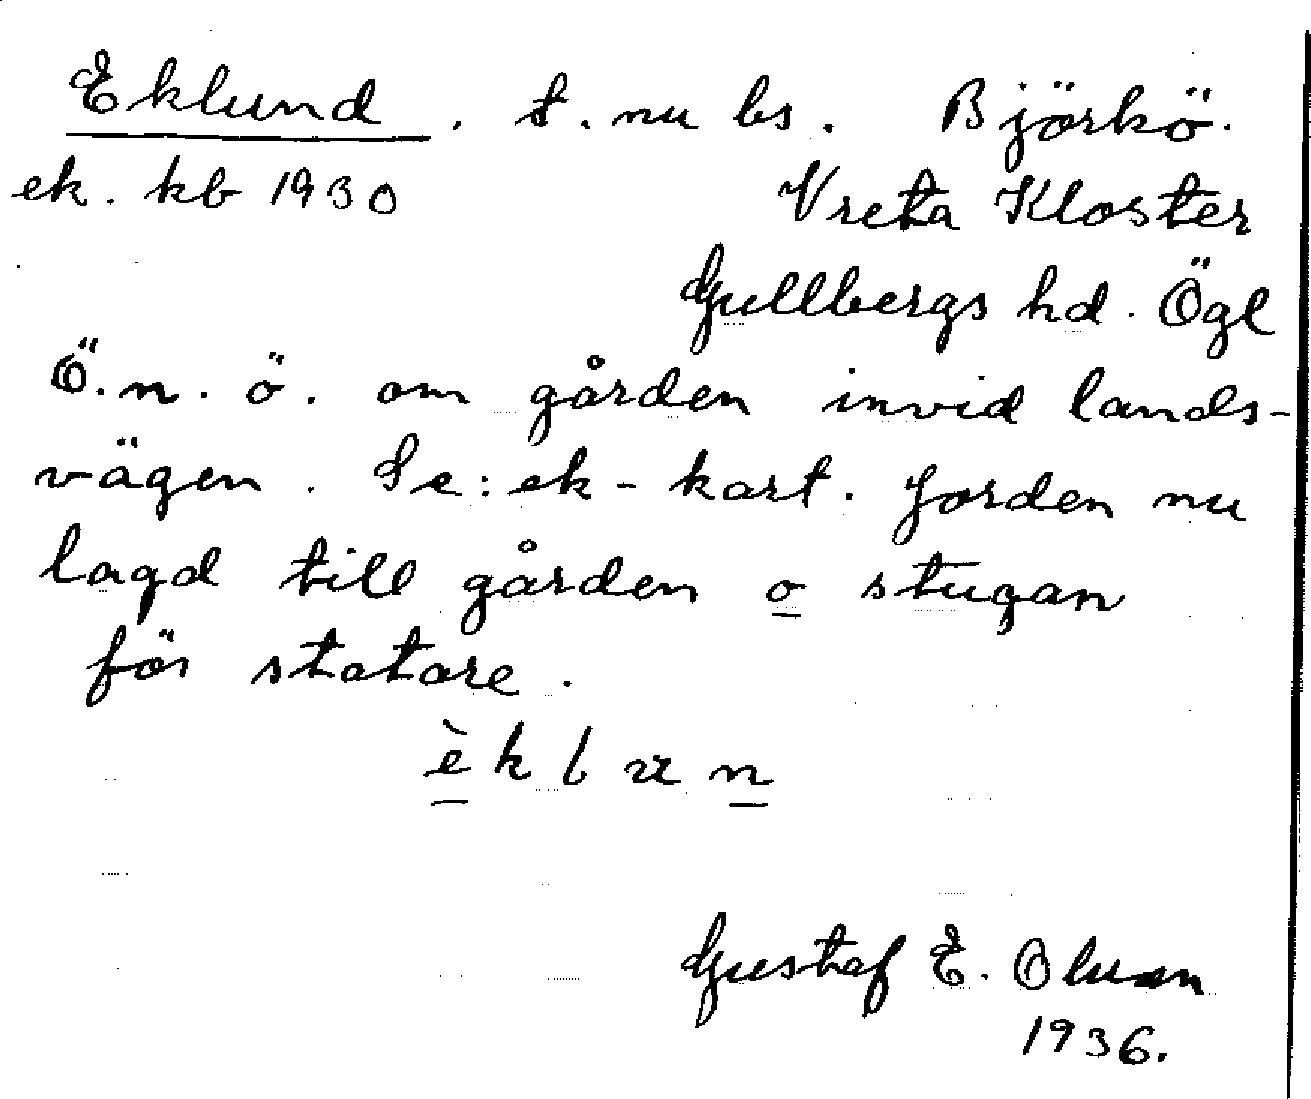 Eklund. t. nu bs. Björkö.
ek. kb 1930 Vreta Kloster
Gullbergs hd. Ögl
Ö. n. ö. om gården invid lands-
vägen. Se: ek-kart. Jorden nu
lagd till gården o stugan
för statare.
èklun
Gustaf E. Olsson
1936.